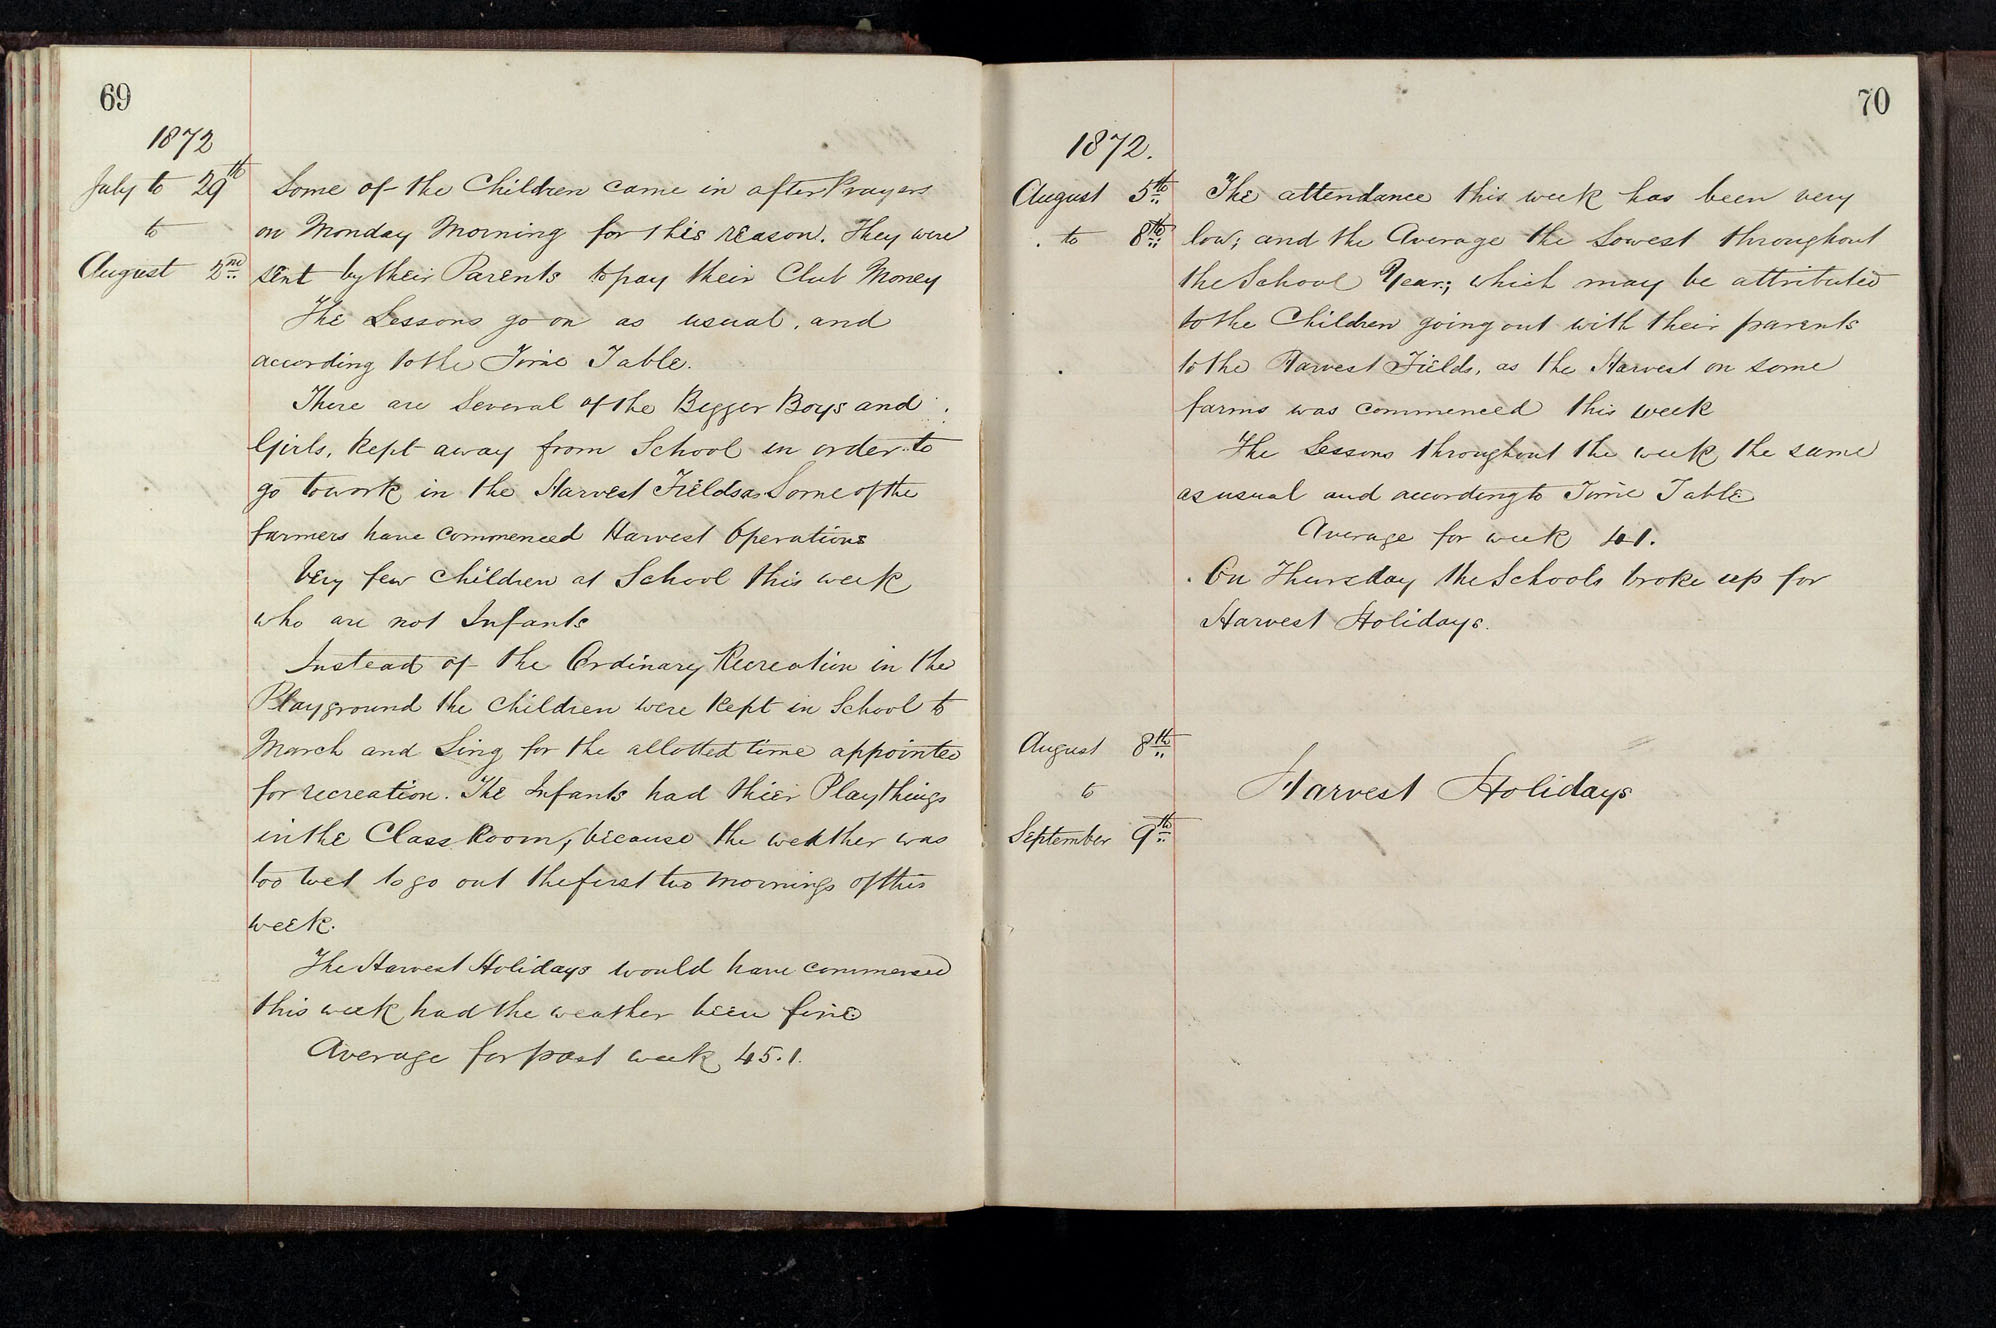 69
1872
July to 29th Some of the Children came in after Prayers
to on Monday Morning for this reason. They were
August 2nd sent by their Parents to pay their Club Money
The Lessons go on as usual, and
according to the Time Table.
There are Several of the Bigger Boys and
Girls, kept away from School in order to
go to work in the Harvest Fields as Some of the
farmers have commenced Harvest Operations
Very few children at School this week
who are not Infants
Instead of the Ordinary Recreation in the
Playground the children were kept in School to
March and Sing for the allotted time appointed
for recreation. The Infants had thier Playthings
in the Class Room, because the weather was
too wet to go out the first two mornings of this
week.
The Harvest Holidays would have commenced
this week had the weather been fine
Average for past week 45.1.
70
1872.
August 5th The attendance this week has been very
to 8th low; and the Average the Lowest throughout
the School Year; which may be attributed
to the Children going out with their parents
to the Harvest Fields, as the Harvest on some
farms was commenced this week
The Lessons throughout the week the same
as usual and according to Time Table
Average for week 41.
On Thursday the Schools broke up for
Harvest Holidays.
August 8th
to Harvest Holidays
September 9th